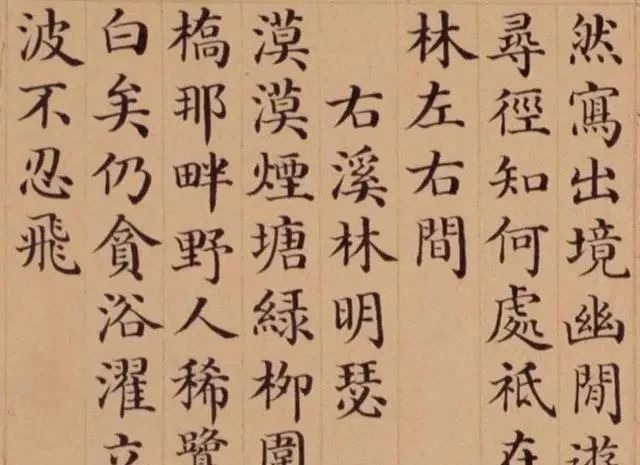 然寫出境幽閒遊
尋徑知何處祇在
林左右間
右溪林明瑟
漠漠煙塘綠柳圍
橋那畔野人稀鷺
白矣仍貪浴濯立
波不忍飛